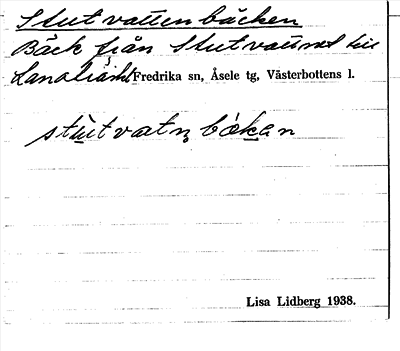 Stutvattenbäcken
Bäck från Stutvattnet till
Fredrika sn, Åsele tg, Västerbottens l.
stùtvatn̥bòkan
Lisa Lidberg 1938.